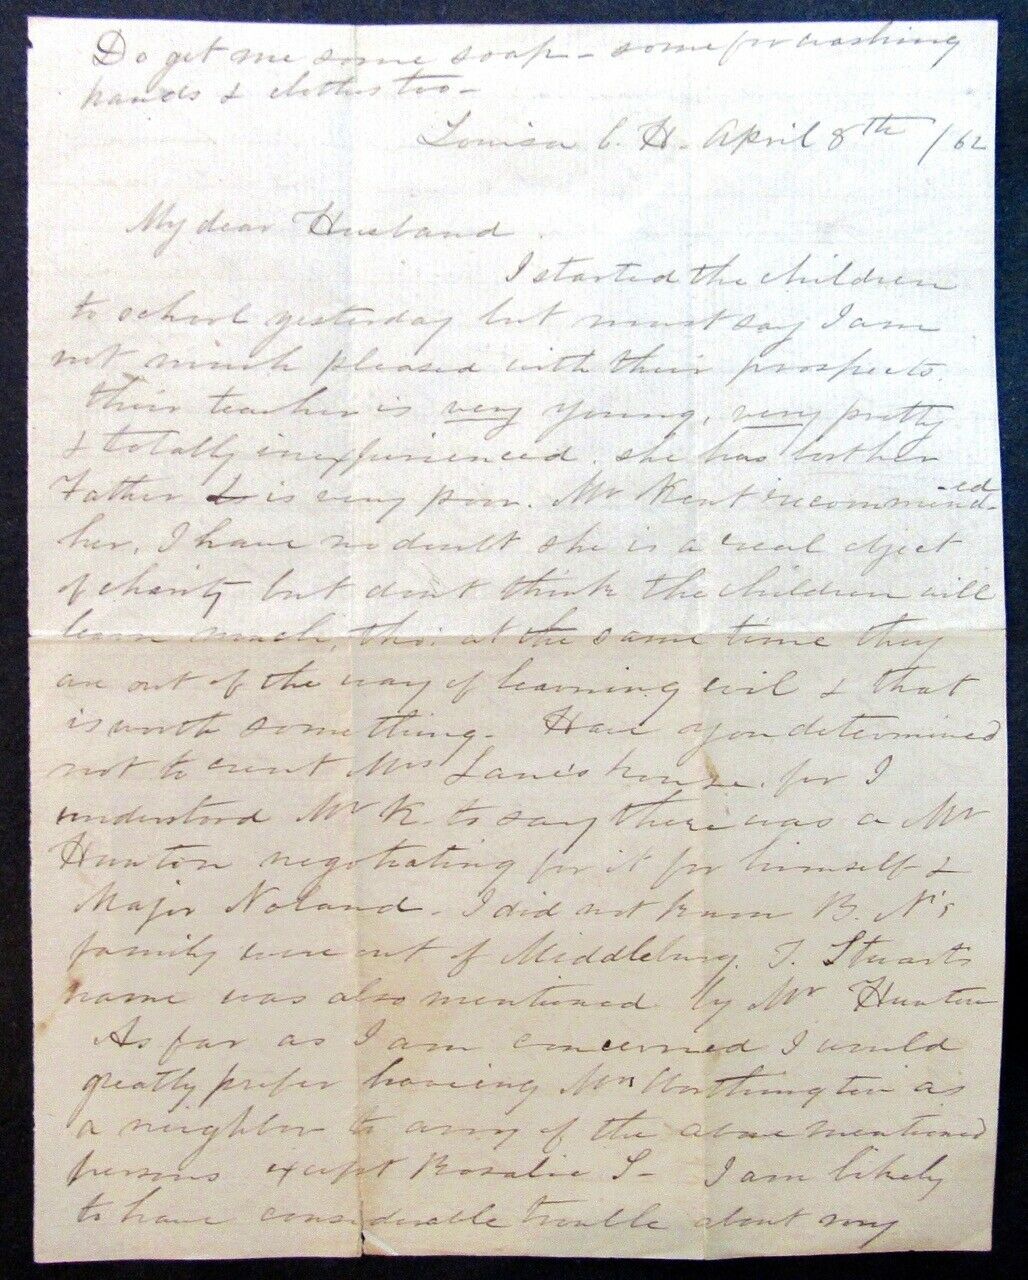 Do get me some soap - some for washing
hands & clothes too -
Louisa C. H. April 8th /62
My dear Husband
I started the children
to school yesterday but must say I am
not much pleased with their prospects.
Their teacher is very young, very pretty
& totally inexperienced. She has lost her
Father & is very poor. Mr Kent recommend-ed
her, I have no doubt she is a real object
of charity but dont think the children will
learn much, tho' at the same time they
are out of the way of learning evil & that
is worth something - Have you determined
not to rent Mrs Lane's house, for I
understood Mr K. to say there was a Mr
Hunton negotiating for it for himself &
Major Noland - I did not know B. N's
family were out of Middleburg. J. Stuart's
name was also mentioned by Mr Hunton
As far as I am concerned I would
greatly prefer having Mrs Worthington as
a neighbor to any of the above mentioned
persons except Rosalie S - I am likely
to have considerable trouble about my